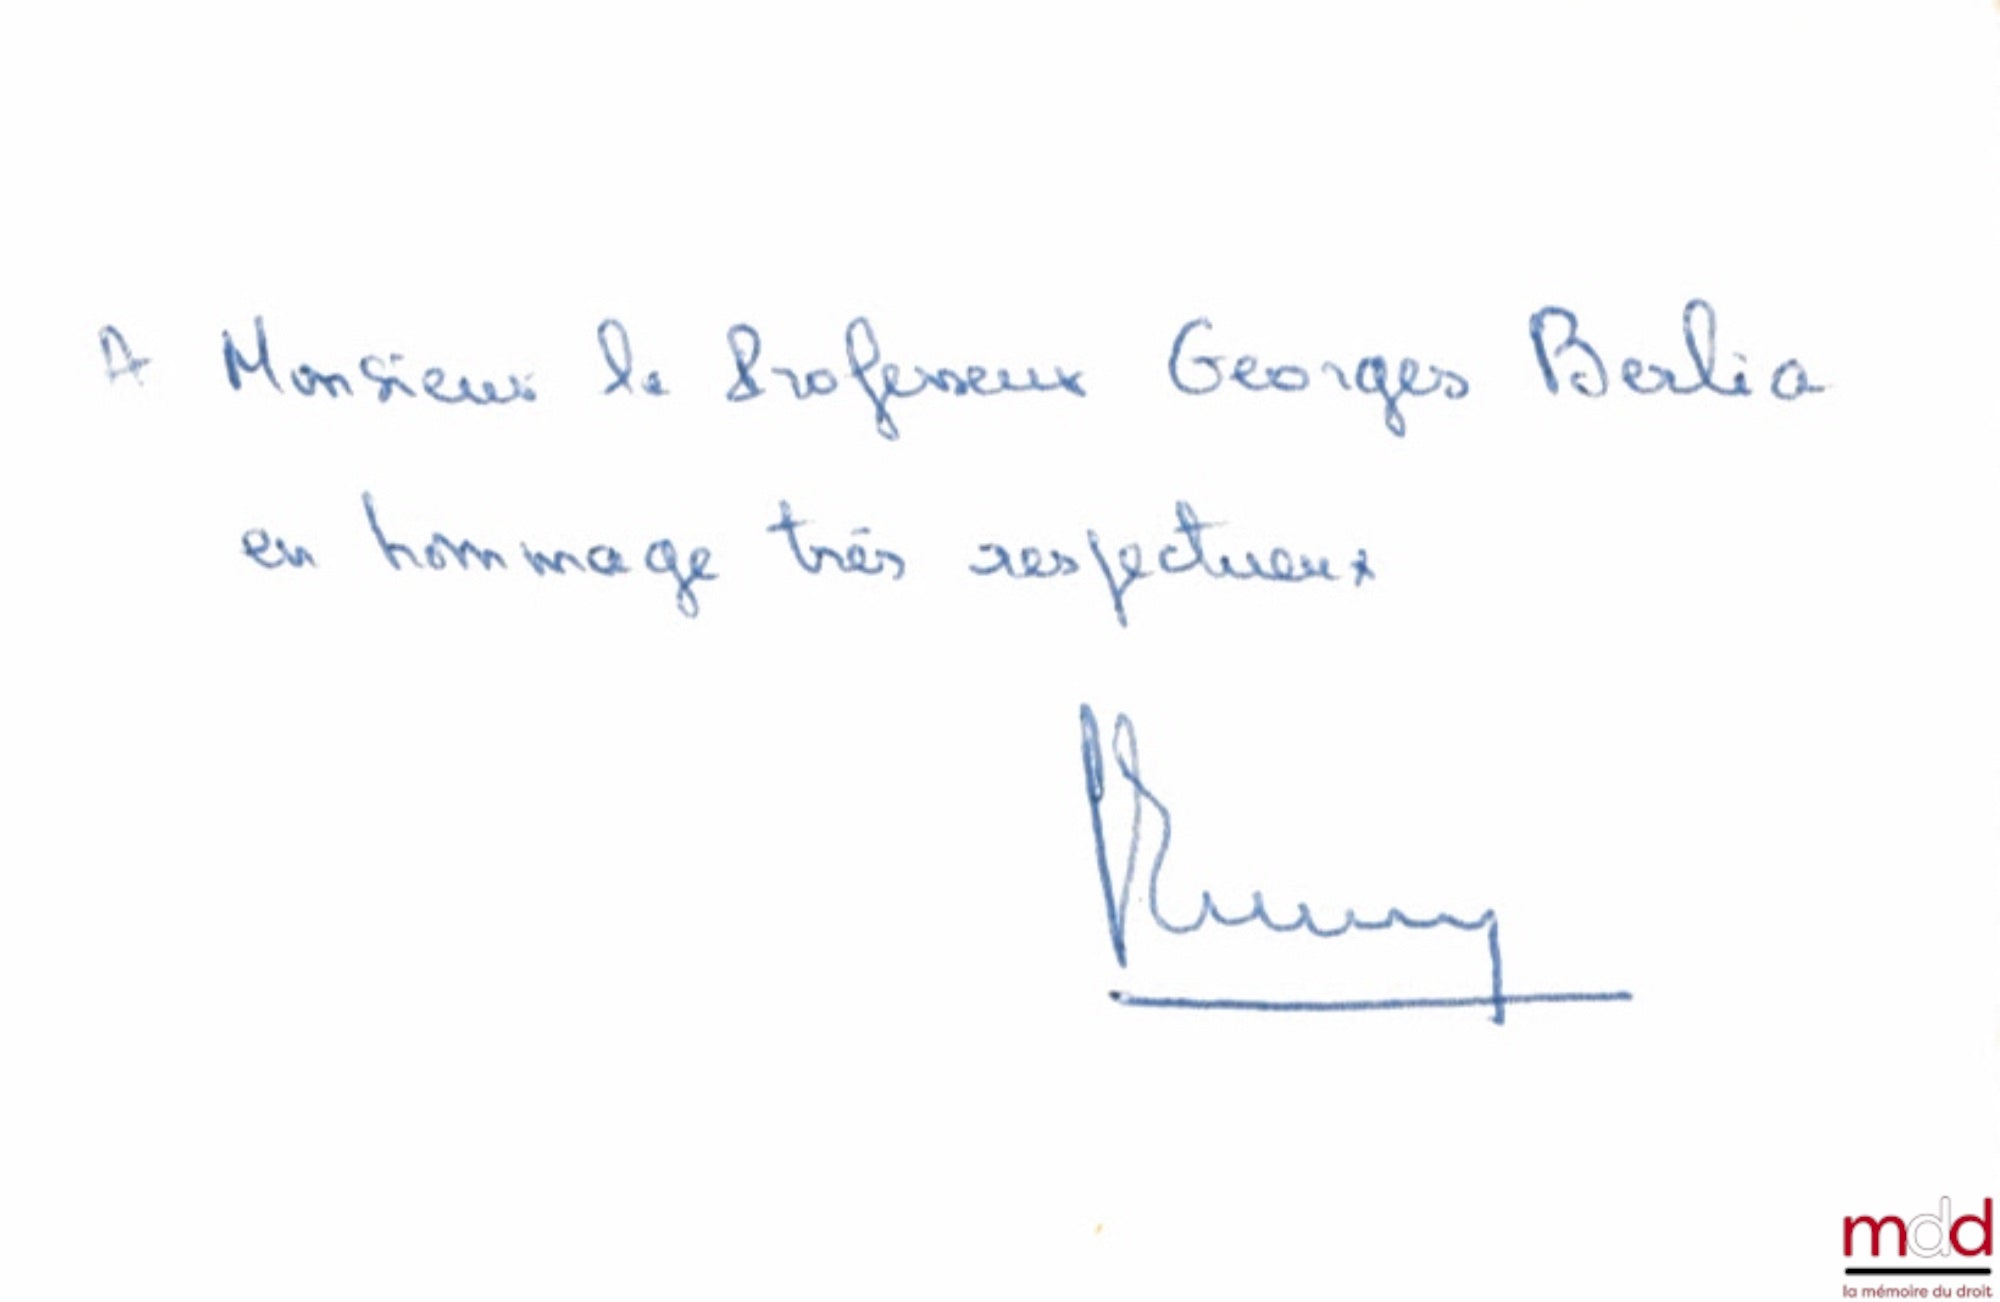 A Monsieur le Professeur Georges Berlia
en hommage très respectueux
mdd
la mémoire du droit